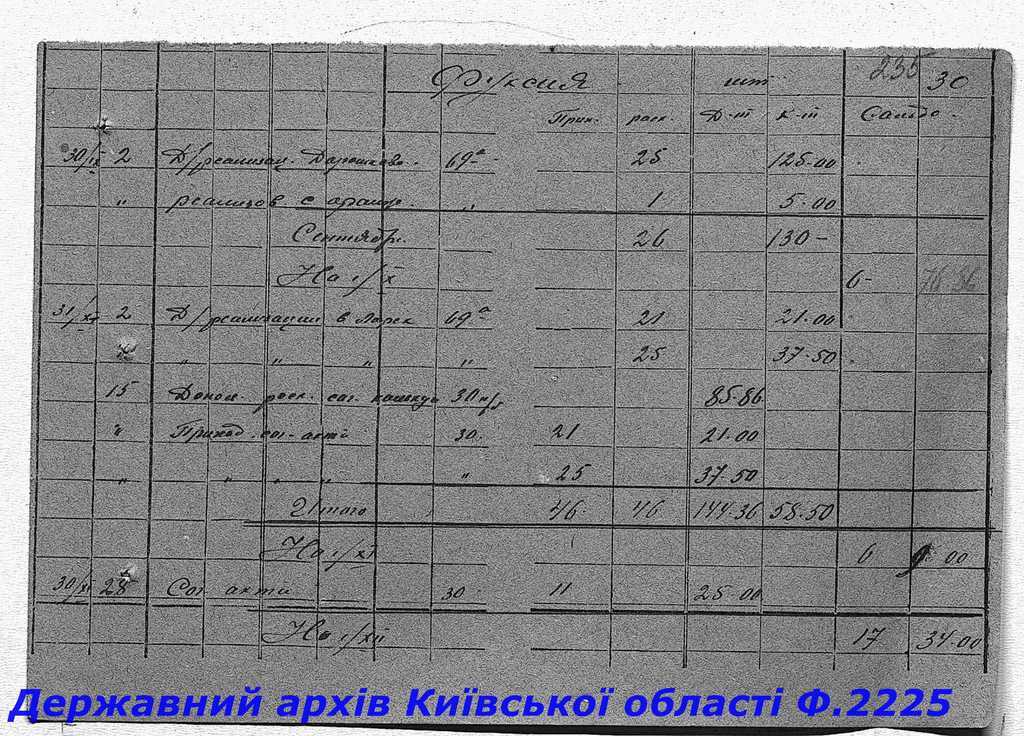 Фуксия шт 235 30
Прих. расх. Д-т К-т Сальдо
30/IX 2 Д/реализац. Дорошково 69а 25 125-00
" реализов с оранж. " 1 5-00
Сентябр. 26 130-
На 1/X 6-
31/X 2 Д/реализации в Ларек 69а 21 21-00
" " " " 25 37-50
15 Допол. расх. сог. 30 85-86
" Приход. сог. акта 30 21 21-00
" " " " " 25 37-50
Итого 46 46 144-36 58-50
На 1/XI 6 9-00
30/XI 28 Сог. акта 30 11 25-00
На 1/XII 17 34-00
Державний архів Київської області Ф.2225